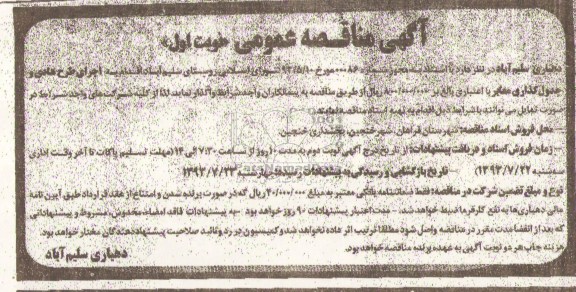 آگهی مناقصه عمومی «نوبت اول»
دهیاری سلیم آباد در نظر دارد با استناد به مجوز شماره ۸۶۰۰۰ مورخ ۹۳/۵/۱۰ شورای اسلامی روستای سلیم آباد اقدام به: اجرای طرح هادی و
جدول گذاری معابر با اعتباری بالغ بر ۸۰۰/۰۰۰/۰۰۰ ریال از طریق مناقصه به پیمانکاران واجد شرایط واگذار نماید. لذا از کلیه شرکت های واجد شرایط در
صورت تمایل می توانند با شرایط ذیل اقدام به تهیه اسناد مناقصه نمایند.
- محل فروش اسناد مناقصه: شهرستان فراهان، شهر خنجین، بخشداری خنجین.
- زمان فروش اسناد و دریافت پیشنهادات: از تاریخ درج آگهی نوبت دوم به مدت ۱۰ روز از ساعت ۷:۳۰ الی ۱۴ (مهلت تسلیم پاکات تا آخر وقت اداری
سه شنبه ۱۳۹۳/۷/۲۲) - تاریخ بازگشایی و رسیدگی به پیشنهادات: روز چهارشنبه ۱۳۹۳/۷/۲۳
نوع و مبلغ تضمین شرکت در مناقصه: فقط ضمانتنامه بانکی معتبر به مبلغ ۴۰/۰۰۰/۰۰۰ ریال که در صورت برنده شدن و امتناع از عقد قرارداد طبق آیین نامه
مالی دهیاری ها به نفع کارفرما ضبط خواهد شد. - مدت اعتبار پیشنهادات ۹۰ روز خواهد بود. - به پیشنهادات فاقد امضاء، مخدوش، مشروط و پیشنهاداتی
که بعد از انقضا مدت مقرر در مناقصه واصل شود مطلقا ترتیب اثر داده نخواهد شد و کمیسیون در رد و تائید صلاحیت پیشنهاد دهندگان مختار خواهد بود.
هزینه چاپ هر دو نوبت آگهی به عهده برنده مناقصه خواهد بود.
دهیاری سلیم آباد